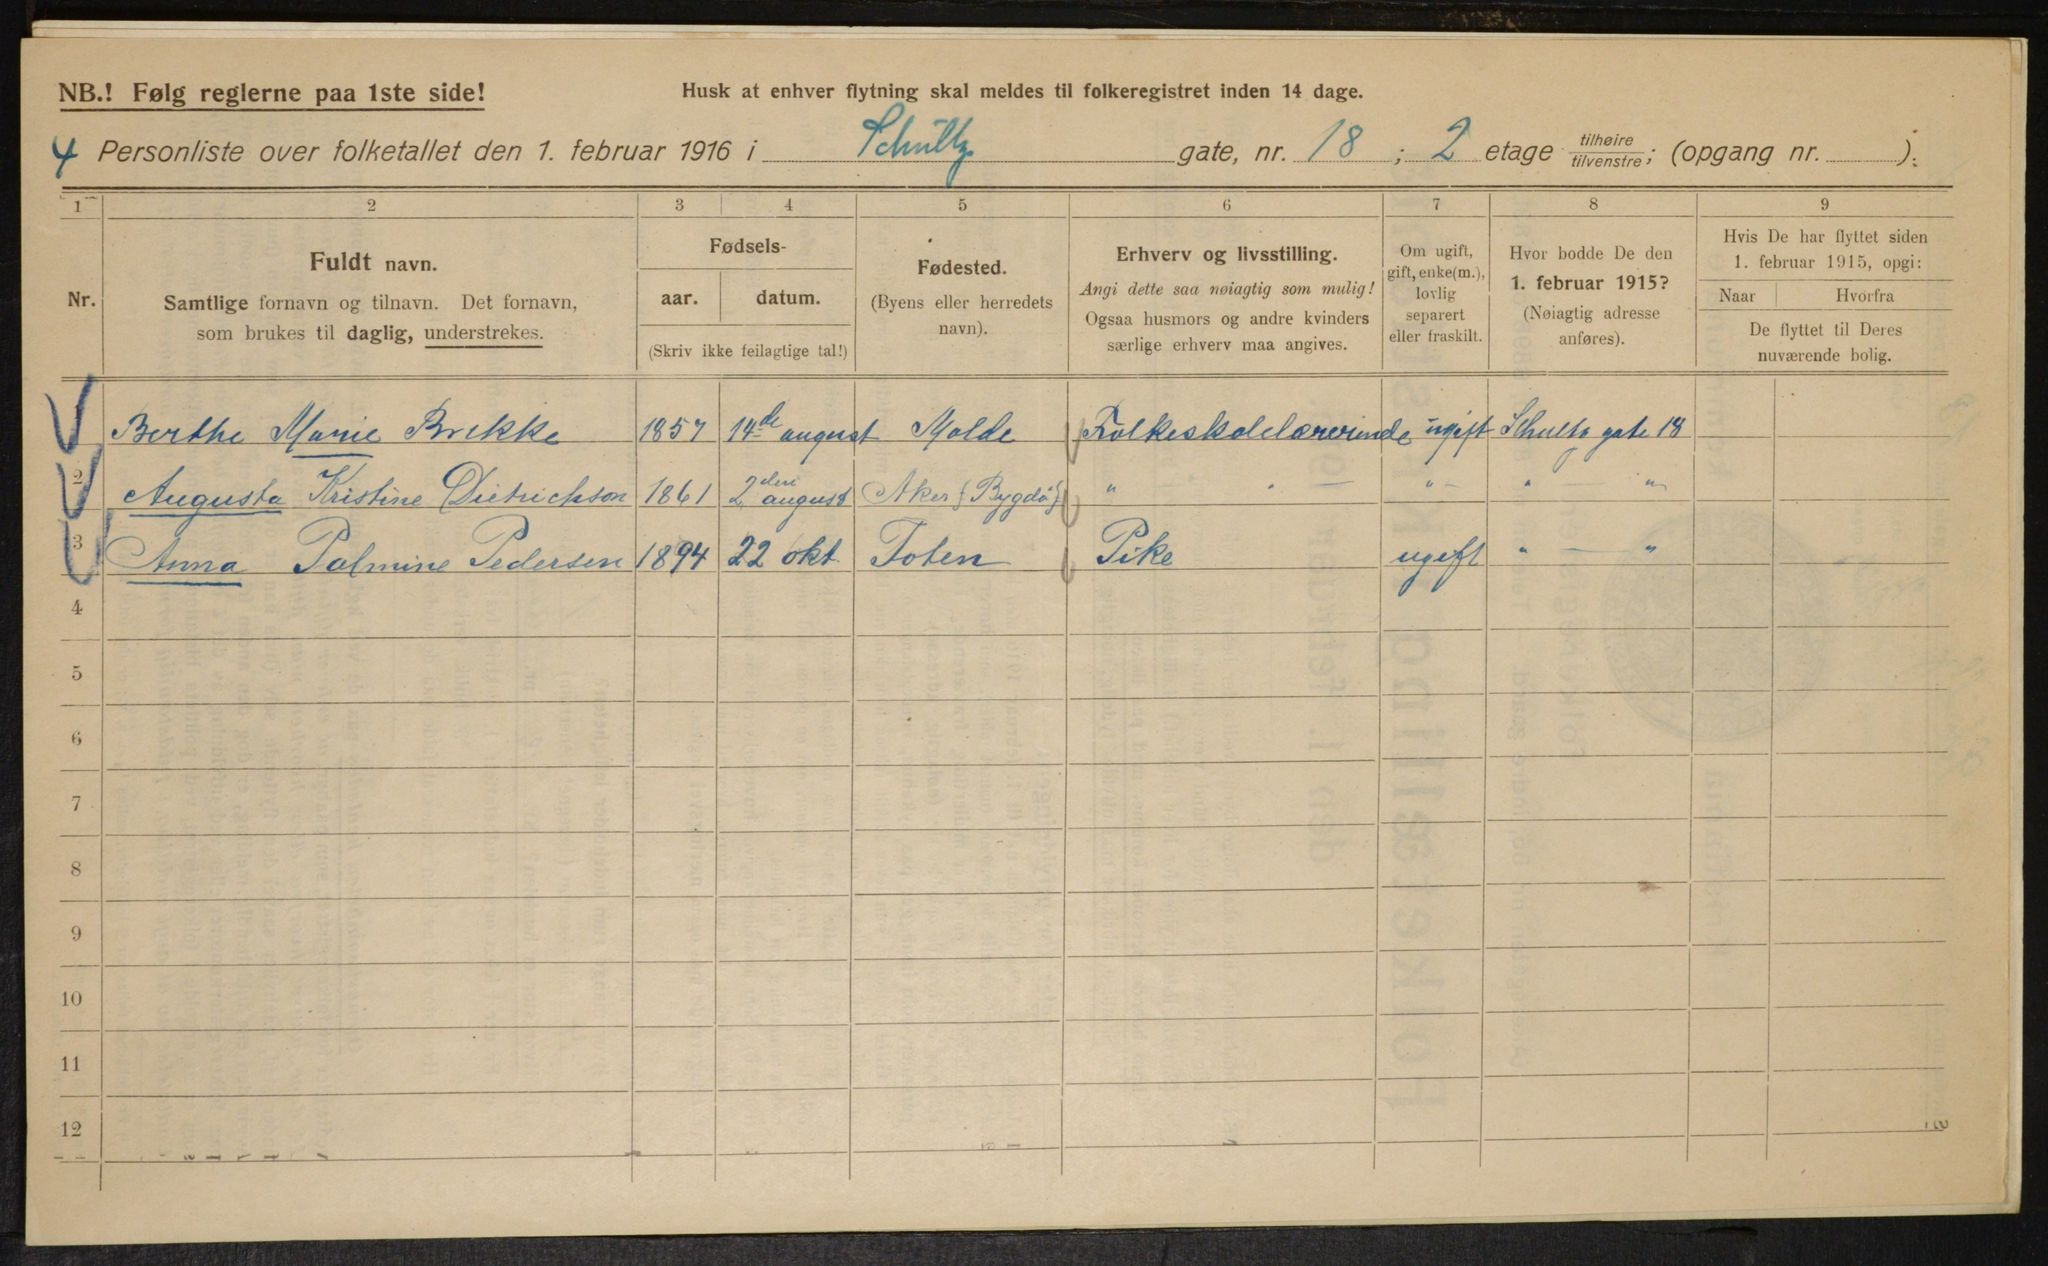 NB.! Følg reglerne paa 1ste side!
Husk at enhver flytning skal meldes til folkeregistret inden 14 dage.
4 Personliste over folketallet den 1. februar 1916 i Schultz gate, nr. 18 ; 2 etage tilhøire/tilvenstre; (opgang nr. ).
1 2 3 4 5 6 7 8 9
Nr.
Fuldt navn.
Samtlige fornavn og tilnavn. Det fornavn,
som brukes til daglig, understrekes.
Fødsels-
aar. datum.
(Skriv ikke feilagtige tal!)
Fødested.
(Byens eller herredets
navn).
Erhverv og livsstilling.
Angi dette saa nøiagtig som mulig!
Ogsaa husmors og andre kvinders
særlige erhverv maa angives.
Om ugift,
gift, enke(m.),
lovlig
separert
eller fraskilt.
Hvor bodde De den
1. februar 1915?
(Nøiagtig adresse
anføres).
Hvis De har flyttet siden
1. februar 1915, opgi:
Naar Hvorfra
De flyttet til Deres
nuværende bolig.
Berthe Marie Brekke 1857 14de august Molde Folkeskolelærerinde ugift Schultz gate 18
2 Augusta Kristine Dietrichson 1861 2den august Aker (Bygdø) " " — " — " — "
3 Anna Palmine Pedersen 1894 22 okt. Toten Pike ugift " — "
4
5
6
7
8
9
10
11
12